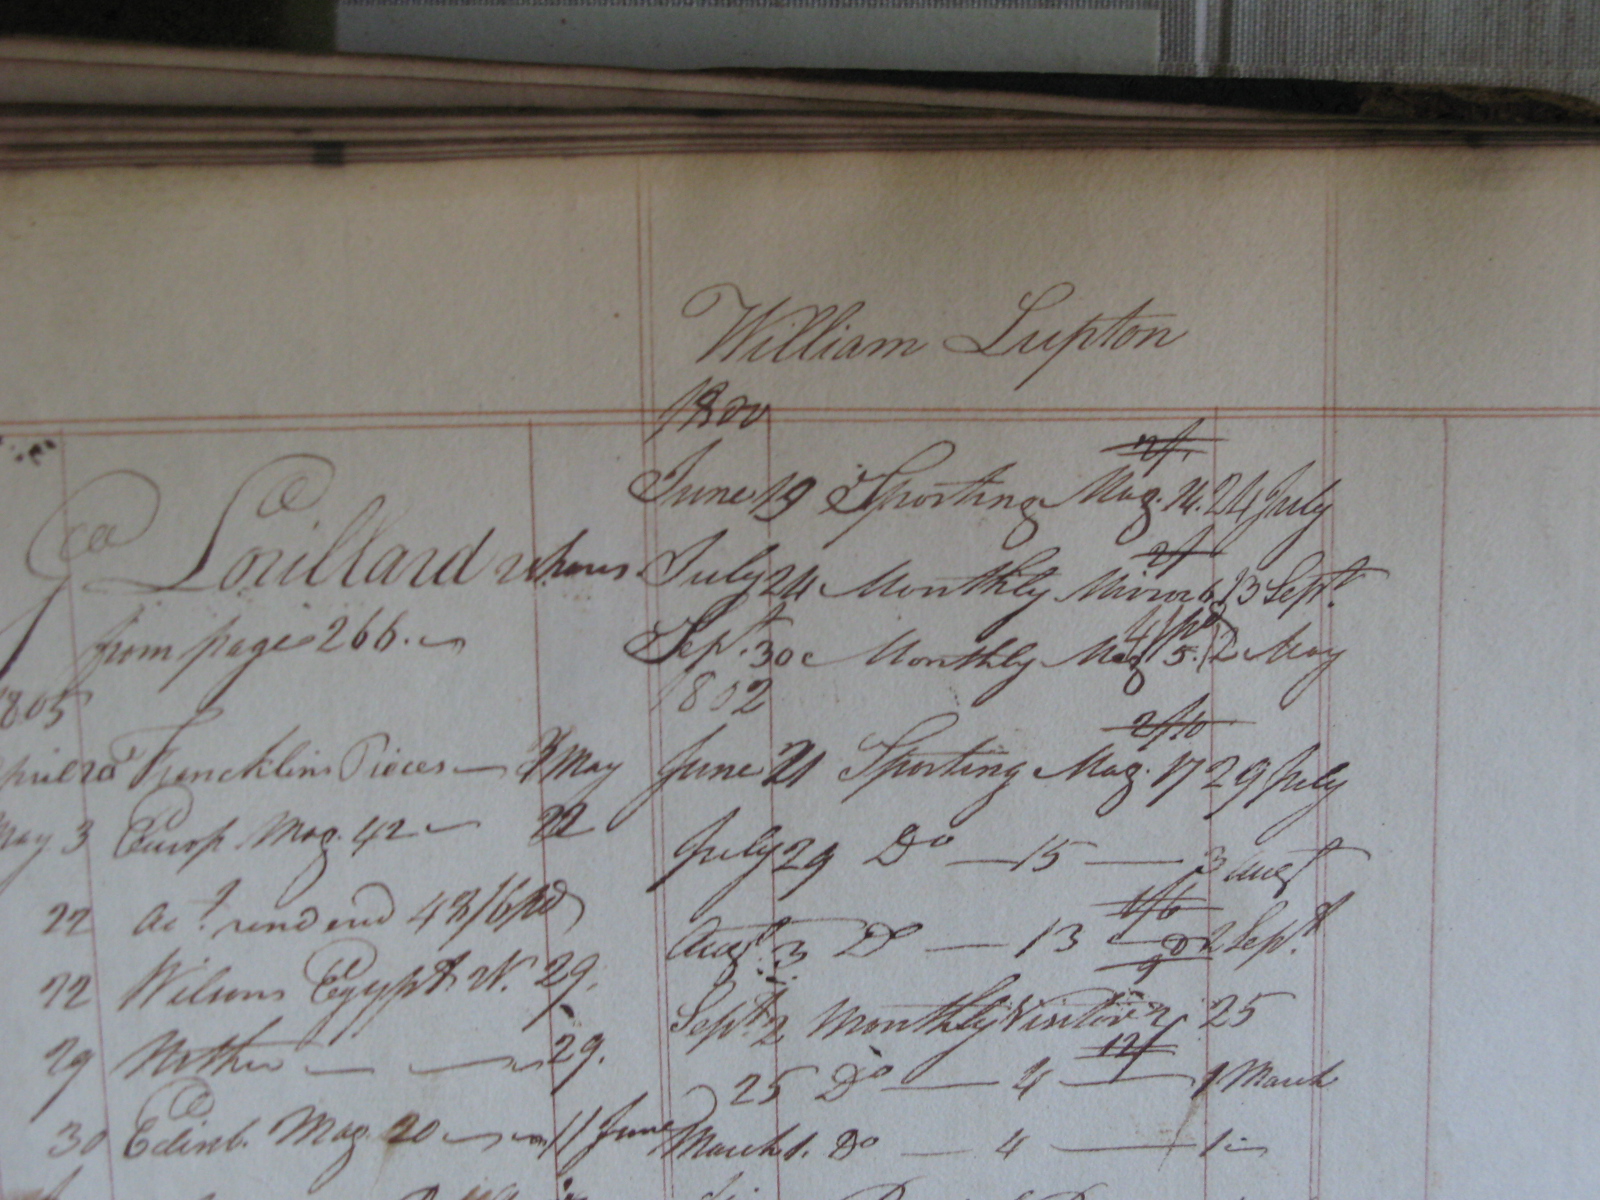 William Lupton
1800
June 19 Sporting Mag. 14. 24 July
2/
July 24 Monthly Mirror 6 13 Sept.
Sept. 30 Monthly Mag 5. 2 May
1802
2/10
June 21 Sporting Mag. 17 29 July
July 29 Do — 15 — 3 Augt
1/6
Augt. 3 Do — 13 — 2 Sept.
9
Sept. 2 Monthly Visitor 2 25
12/
25 Do — 4 — 1 March
March 1. Do — 4 — 1
Geo Lorillard
from page 266.
1805
April 20 Francklins Pieces — 3 May
May 3 Europ Mag. 42 — 22
22 Act. rend end 48/6 pd
22 Wilsons Egypt. W. 29.
29 Mother — — 29.
30 Edinb. Mag. 20 — 11 June